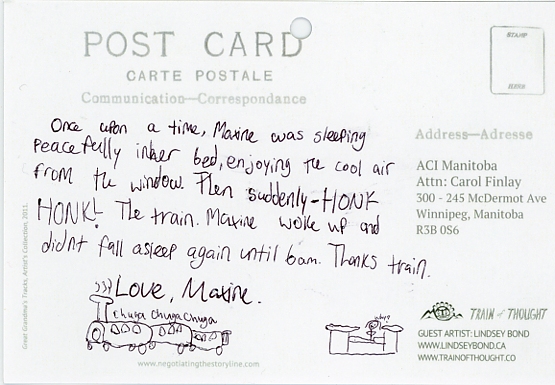 POST CARD
CARTE POSTALE
Communication—Correspondance
STAMP
Once upon a time, Maxine was sleeping
peacefully in her bed, enjoying the cool air
from the window. Then suddenly - HONK
HONK! The train. Maxine woke up and
didnt fall asleep again until 6am. Thanks train.
Love, Maxine.
chuga chuga chuga
Address—Adresse
ACI Manitoba
Attn: Carol Finlay
300 - 245 McDermot Ave
Winnipeg, Manitoba
R3B 0S6
why?
TRAIN of THOUGHT
GUEST ARTIST: LINDSEY BOND
WWW.LINDSEYBOND.CA
WWW.TRAINOFTHOUGHT.CO
www.negotiatingthestoryline.com
Great Grandma's Tracks, Artist's Collection, 2011.